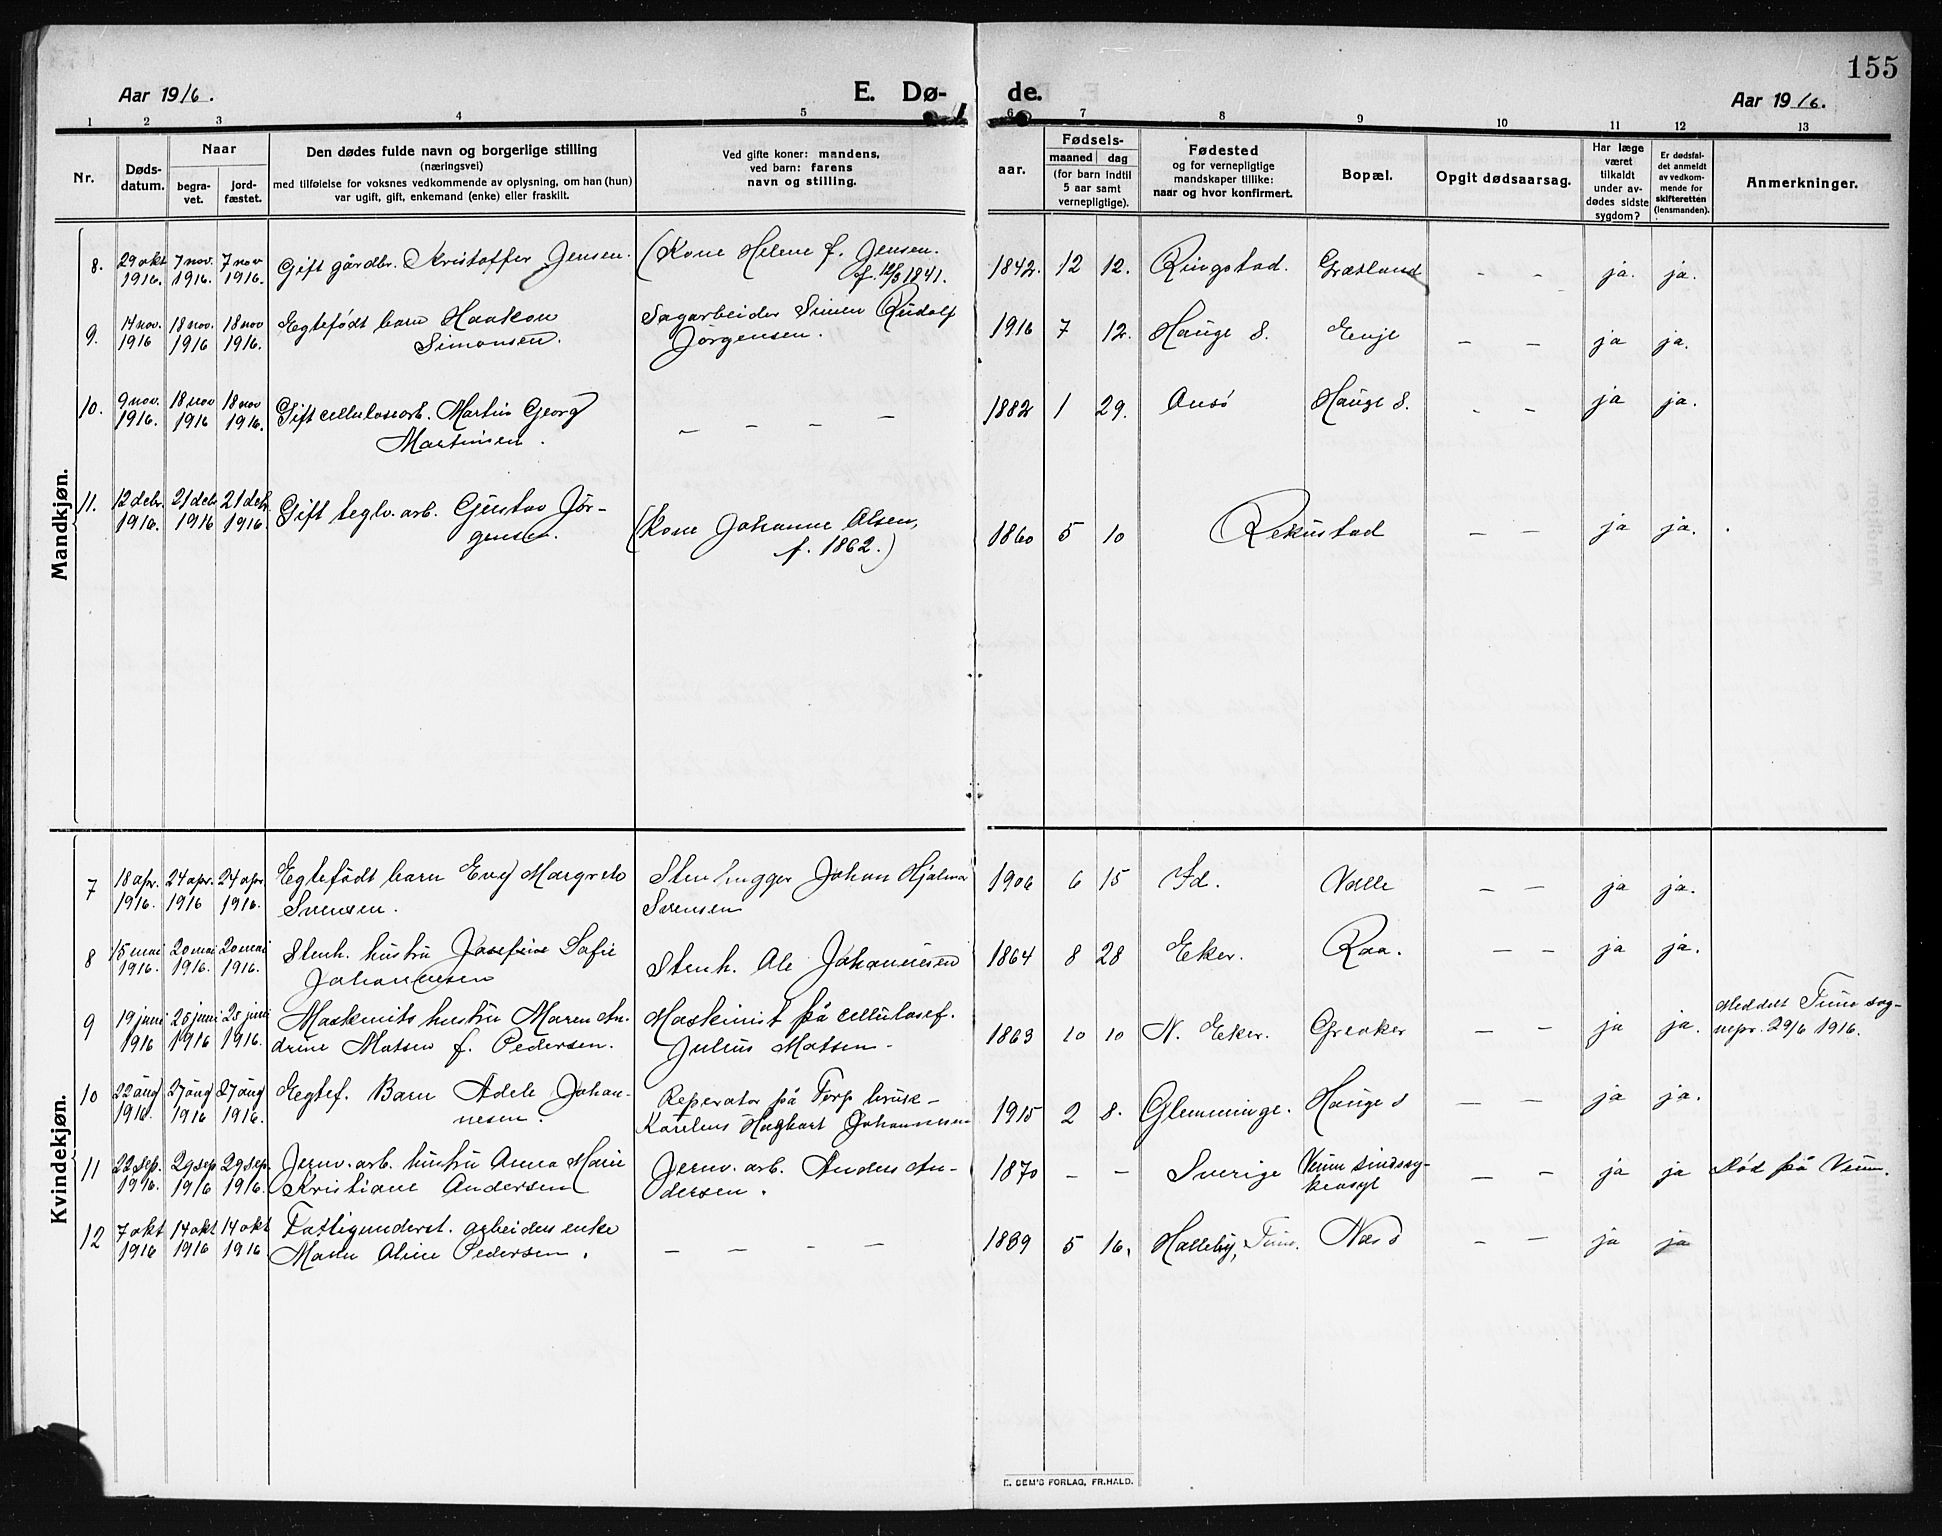 155
Aar 1916.
E. Dø-
de.
Aar 1916.
1 2 3 4 5 6 7 8 9 10 11 12 13
Nr.
Døds-
datum.
Naar
begra-
vet.
jord-
fæstet.
Den dødes fulde navn og borgerlige stilling
(næringsvei)
med tilføielse for voksnes vedkommende av oplysning, om han (hun)
var ugift, gift, enkemand (enke) eller fraskilt.
Ved gifte koner: mandens,
ved barn: farens
navn og stilling.
aar.
Fødsels-
maaned dag
(for barn indtil
5 aar samt
vernepligtige).
Fødested
og for vernepligtige
mandskaper tillike:
naar og hvor konfirmert.
Bopæl.
Opgit dødsaarsag.
Har læge
været
tilkaldt
under av-
dødes sidste
sygdom?
Er dødsfal-
det anmeldt
av vedkom-
mende for
skifteretten
(lensmanden).
Anmerkninger.
Mandkjøn.
8. 29 okt 1916. 7 nov. 1916. 7 nov 1916. Gift gårdbr. Kristoffer Jensen. (Kone Helene f. Jensen.
f. 12/3 1841.
1842. 12 12. Ringstad. Græsland - - ja. ja.
9. 14 nov. 1916 18 nov. 1916 18 nov 1916. Egtefödt barn Haakon
Simonsen.
Sagarbeider Simen Rudolf
Jørgensen.
1916 7 12. Hauge S. Enje - - ja ja.
10. 9 nov. 1916. 18 nov 1916 18 nov 1916. Gift cellulosearb. Martin Georg
Martinsen.
- - - -
1882 1 29. Onsö Hauge S. - - ja ja.
11. 12 debr. 1916. 21 debr 1916 21 debr 1916. Gift teglv. arb. Gustav Jör-
gensen.
(Kone Johanne Olsen,
f. 1862.)
1860 5 10 Rekustad - - ja ja.
Kvindekjøn.
7 18 apr. 1916. 24 apr. 1916 24 apr 1916. Egtefödt barn Evy Margrete
Svensen.
Stenhugger Johan Hjalmar
Svensen
1906 6 15 Id. Valle - - ja ja.
8 15 mai 1916. 20 mai 1916. 20 mai 1916. Stenh. hustru Josefine Sofie
Johannesen
Stenh. Ole Johannesen
1864 8 28 Eker. Raa. - - ja ja.
9 19 juni 1916 25 juni 1916 25 juni 1916. Maskinists hustru Maren An-
drine Matsen f. Pedersen.
Maskinist på cellulosef.
Julius Matsen -
1863 10 10 N. Eker. Greaker - - ja ja. Meddelt Tune sog-
nepr. 29/6 1916.
10 22 aug 1916. 27 aug 1916 27 aug 1916. Egtef. Barn Adele Johan-
nesen.
Reperatør på Torp bruk -
Karelius Hagbart Johannesen
1915 2 8. Glemminge. Hauge S - - ja ja.
11 22 sep. 1916. 29 sep 1916 29 sep. 1916. Jernv. arb. hustru Anna Marie
Kristiane Andersen
Jernv. arb. Anders An-
dersen.
1870 - - Sverige Veum sindssy-
keasyl - - ja ja Död på Veum.
12 7 okt 1916 14 okt 1916 14 okt 1916. Fattigunderst. arbeiders enke
Maren Oline Pedersen.
- - - -
1839 5 16. Halleby, Tune. Næs S - - ja ja
E. SEM'S FORLAG, FR.HALD.